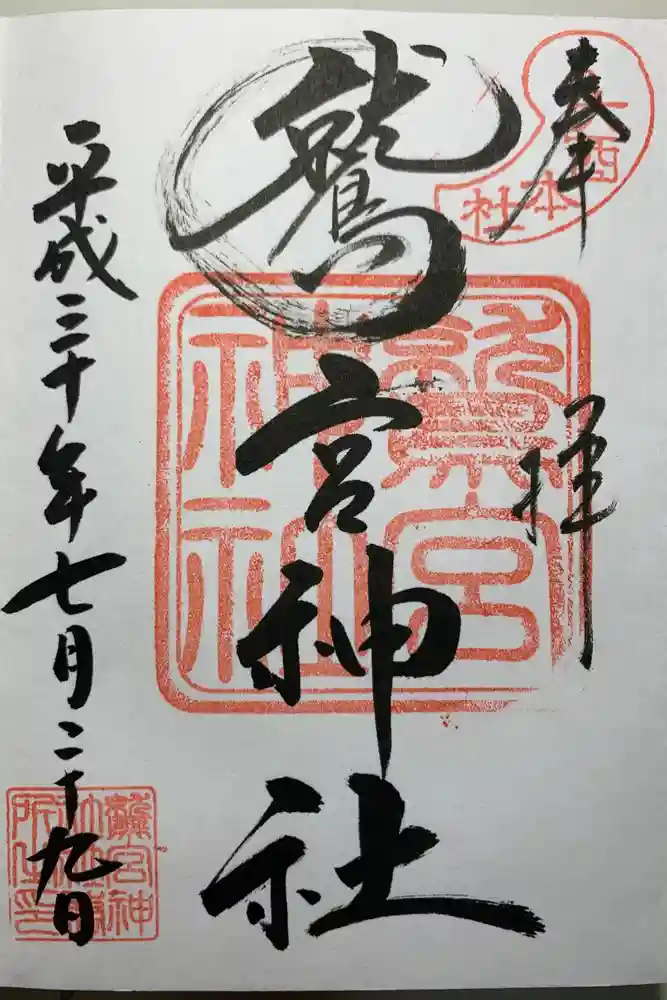 奉拝
本社
鷲宮神社
鷲宮
神社
平成三十年七月二十九日
鷲宮神
社社務
所之印